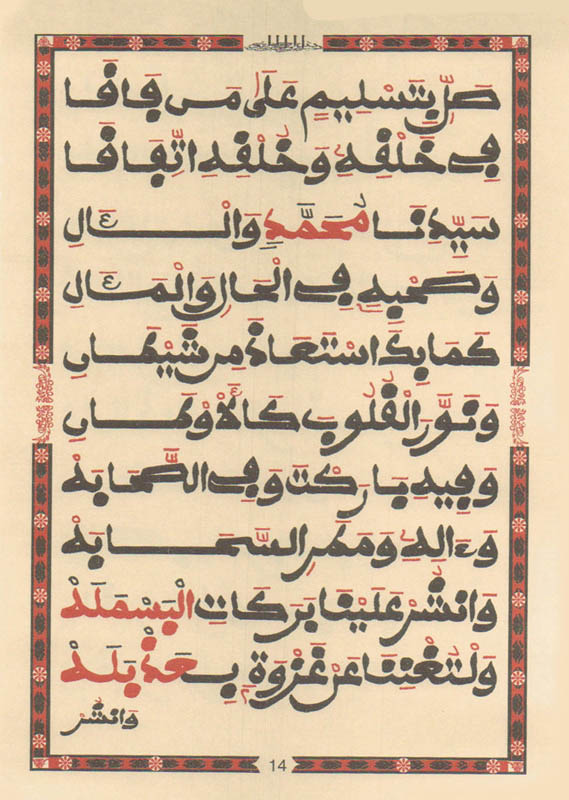 صَلِّ بِتَسْلِيمٍ عَلَى مَن فَاقَا
فِي خَلْقِهِ وَخُلْقِهِ اتِّفَاقَا
سَيِّدِنَا مُحَمَّدٍ وَالْآلِ
وَصَحْبِهِ فِي الْحَالِ وَالْمَآلِ
كَمَا بِكَ اسْتَعَاذَ مِن شَيْطَانِ
وَنَوِّرِ الْقُلُوبَ كَالْأَوْطَانِ
وَفِيهِ بَارَكْتَ وَفِي الصَّحَابَهْ
وَءَالِهِ وَمَطَرِ السَّحَابَهْ
وَانْشُرْ عَلَيْنَا بَرَكَاتِ الْبَسْمَلَهْ
وَلْتُغْنِنَا عَنْ غَزْوَةٍ
وانشر
14